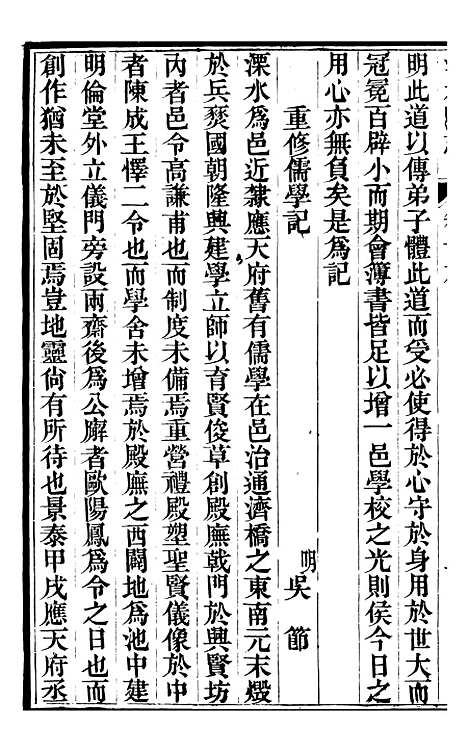 明此道以傳弟子體此道而受必使得於心守於身用於世大而
冠冕百辟小而期會簿書皆足以增一邑學校之光則侯今日之
用心亦無負矣是爲記
重修儒學記 明吳節
溧水爲邑近隸應天府舊有儒學在邑治通濟橋之東南元末燬
於兵燹國朝隆興建學立師以育賢俊草創殿廡戟門於興賢坊
內者邑令高謙甫也而制度未備焉重營禮殿塑聖賢儀像於中
者陳成王懌二令也而學舍未增焉於殿廡之西闢地爲池中建
明倫堂外立儀門旁設兩齋後爲公廨者歐陽鳳爲令之日也而
創作猶未至於堅固焉豈地靈尙有所待也景泰甲戌應天府丞